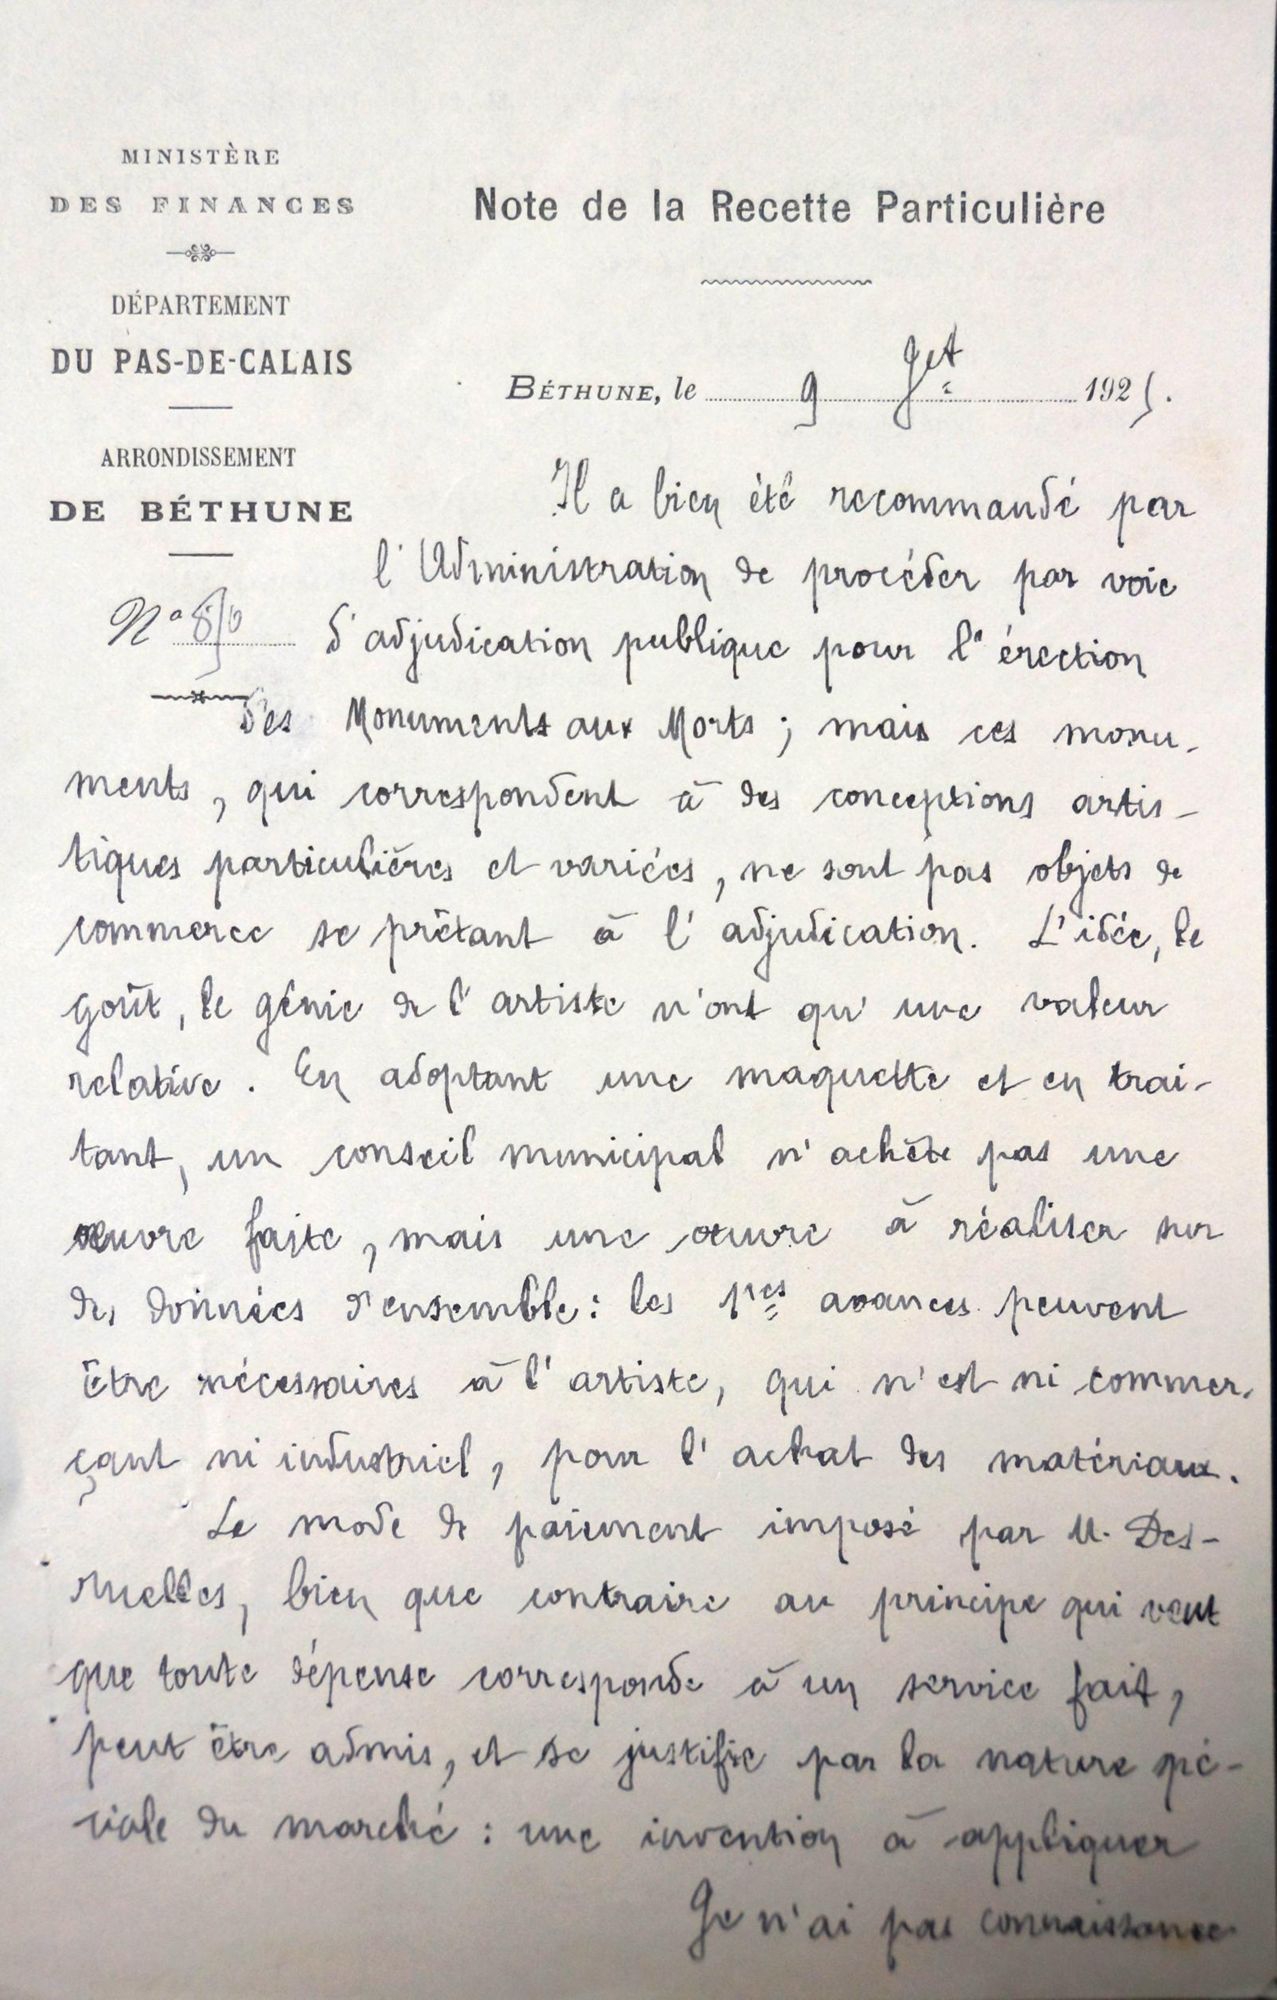 MINISTÈRE
DES FINANCES
DÉPARTEMENT
DU PAS-DE-CALAIS
ARRONDISSEMENT
DE BÉTHUNE
Nº
Note de la Recette Particulière
BÉTHUNE, le 9 Jet 1925.
Il a bien été recommandé par
l'Administration de procéder par voie
d'adjudication publique pour l'érection
des Monuments aux Morts ; mais ces monu-
ments, qui correspondent à des conceptions artis-
tiques particulières et variées, ne sont pas objets de
commerce se prêtant à l'adjudication. L'idée, le
goût, le génie de l'artiste n'ont qu'une valeur
relative. En adoptant une maquette et en trai-
tant, un conseil municipal n'achète pas une
œuvre faite, mais une œuvre à réaliser sur
des données d'ensemble : les 1res avances peuvent
être nécessaires à l'artiste, qui n'est ni commer-
çant ni industriel, pour l'achat des matériaux.
Le mode de paiement imposé par M. Des-
ruelles, bien que contraire au principe qui veut
que toute dépense corresponde à un service fait,
peut être admis, et se justifie par la nature spé-
ciale du marché : une invention à appliquer
Je n'ai pas connaissance